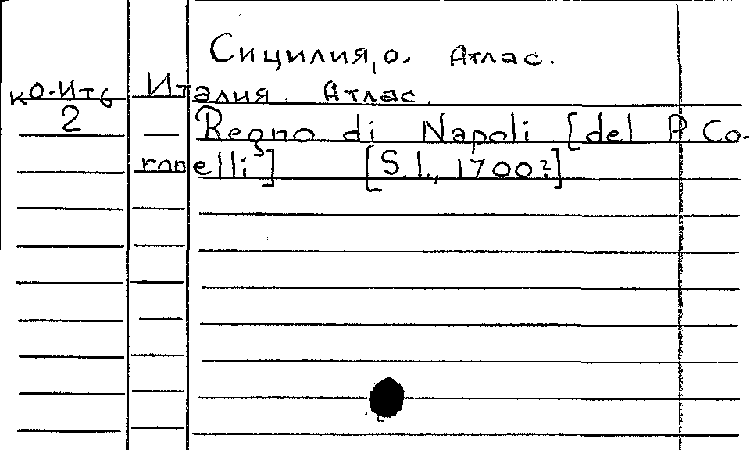 Сицилия, о. Атлас.
КО-ИТ6 Италия. Атлас.
2 Regno di Napoli [del P. Co-
ronelli] [S.l., 1700?]